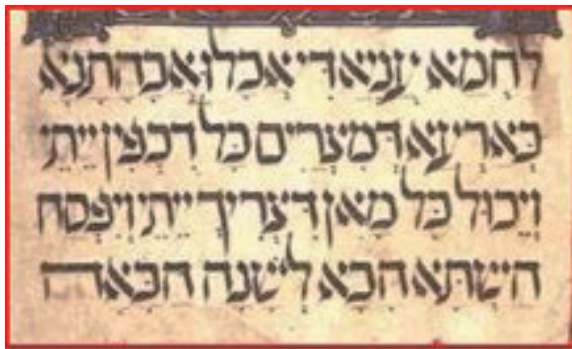 לַחְמָא עַנְיָא דִּי אֲכַלוּ אַבְהָתַנָא
בְּאַרְעָא דְמִצְרַיִם כָּל דִּכְפִין יֵיתֵי
וְיֵכוּל כָּל מָאן דִּצְרִיךְ יֵיתֵי וְיִפְסַח
הַשַּׁתָּא הָכָא לְשָׁנָה הַבָּאָה